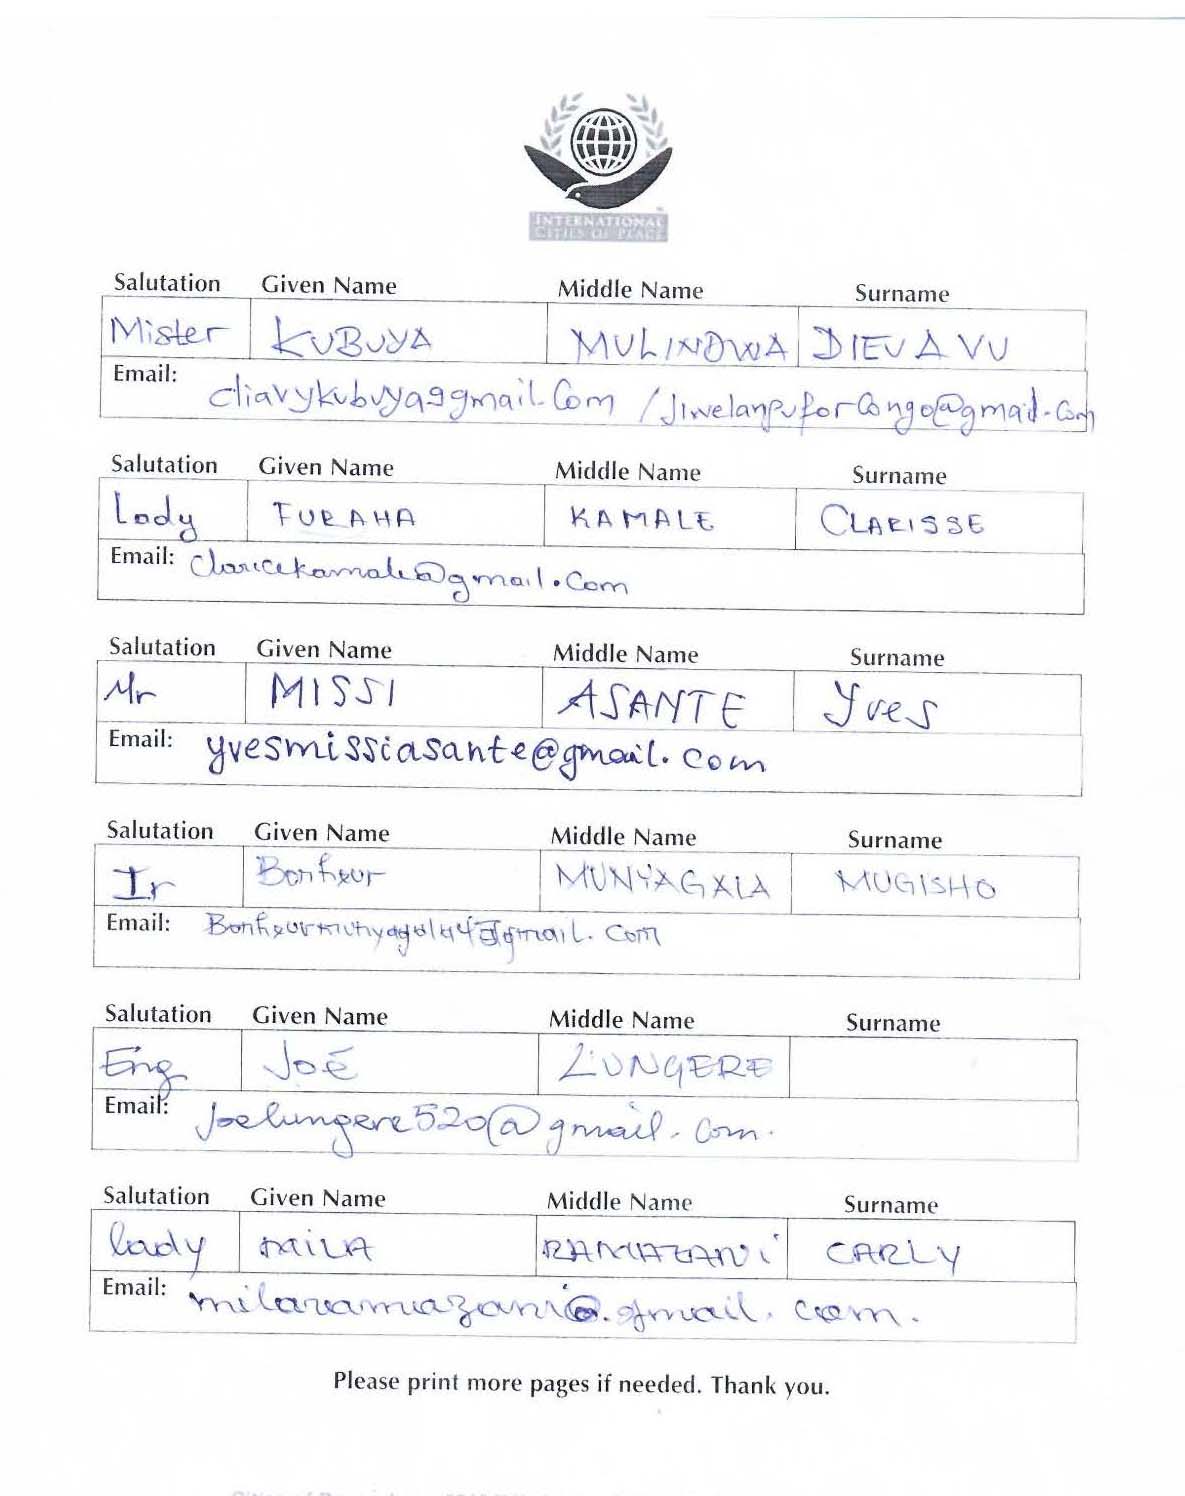 INTERNATIONAL
CITIES OF PEACE
Salutation Given Name Middle Name Surname
Mister KUBUYA MULINDWA DIEVAVU
Email: diavykubuya9gmail.Com / jiwelanpuforCongo@gmail.com
Salutation Given Name Middle Name Surname
Lady FURAHA KAMALE CLARISSE
Email: claricekamale@gmail.Com
Salutation Given Name Middle Name Surname
Mr MISSI ASANTE Yves
Email: yvesmissiasante@gmail.com
Salutation Given Name Middle Name Surname
Ir Bonheur MUNYAGALA MUGISHO
Email: gmail.com
Salutation Given Name Middle Name Surname
Eng Joé LUNGERE
Email: joelungere520@gmail.com.
Salutation Given Name Middle Name Surname
lady MILA RAMAZANI CARLY
Email: milaramazani@.gmail.com.
Please print more pages if needed. Thank you.